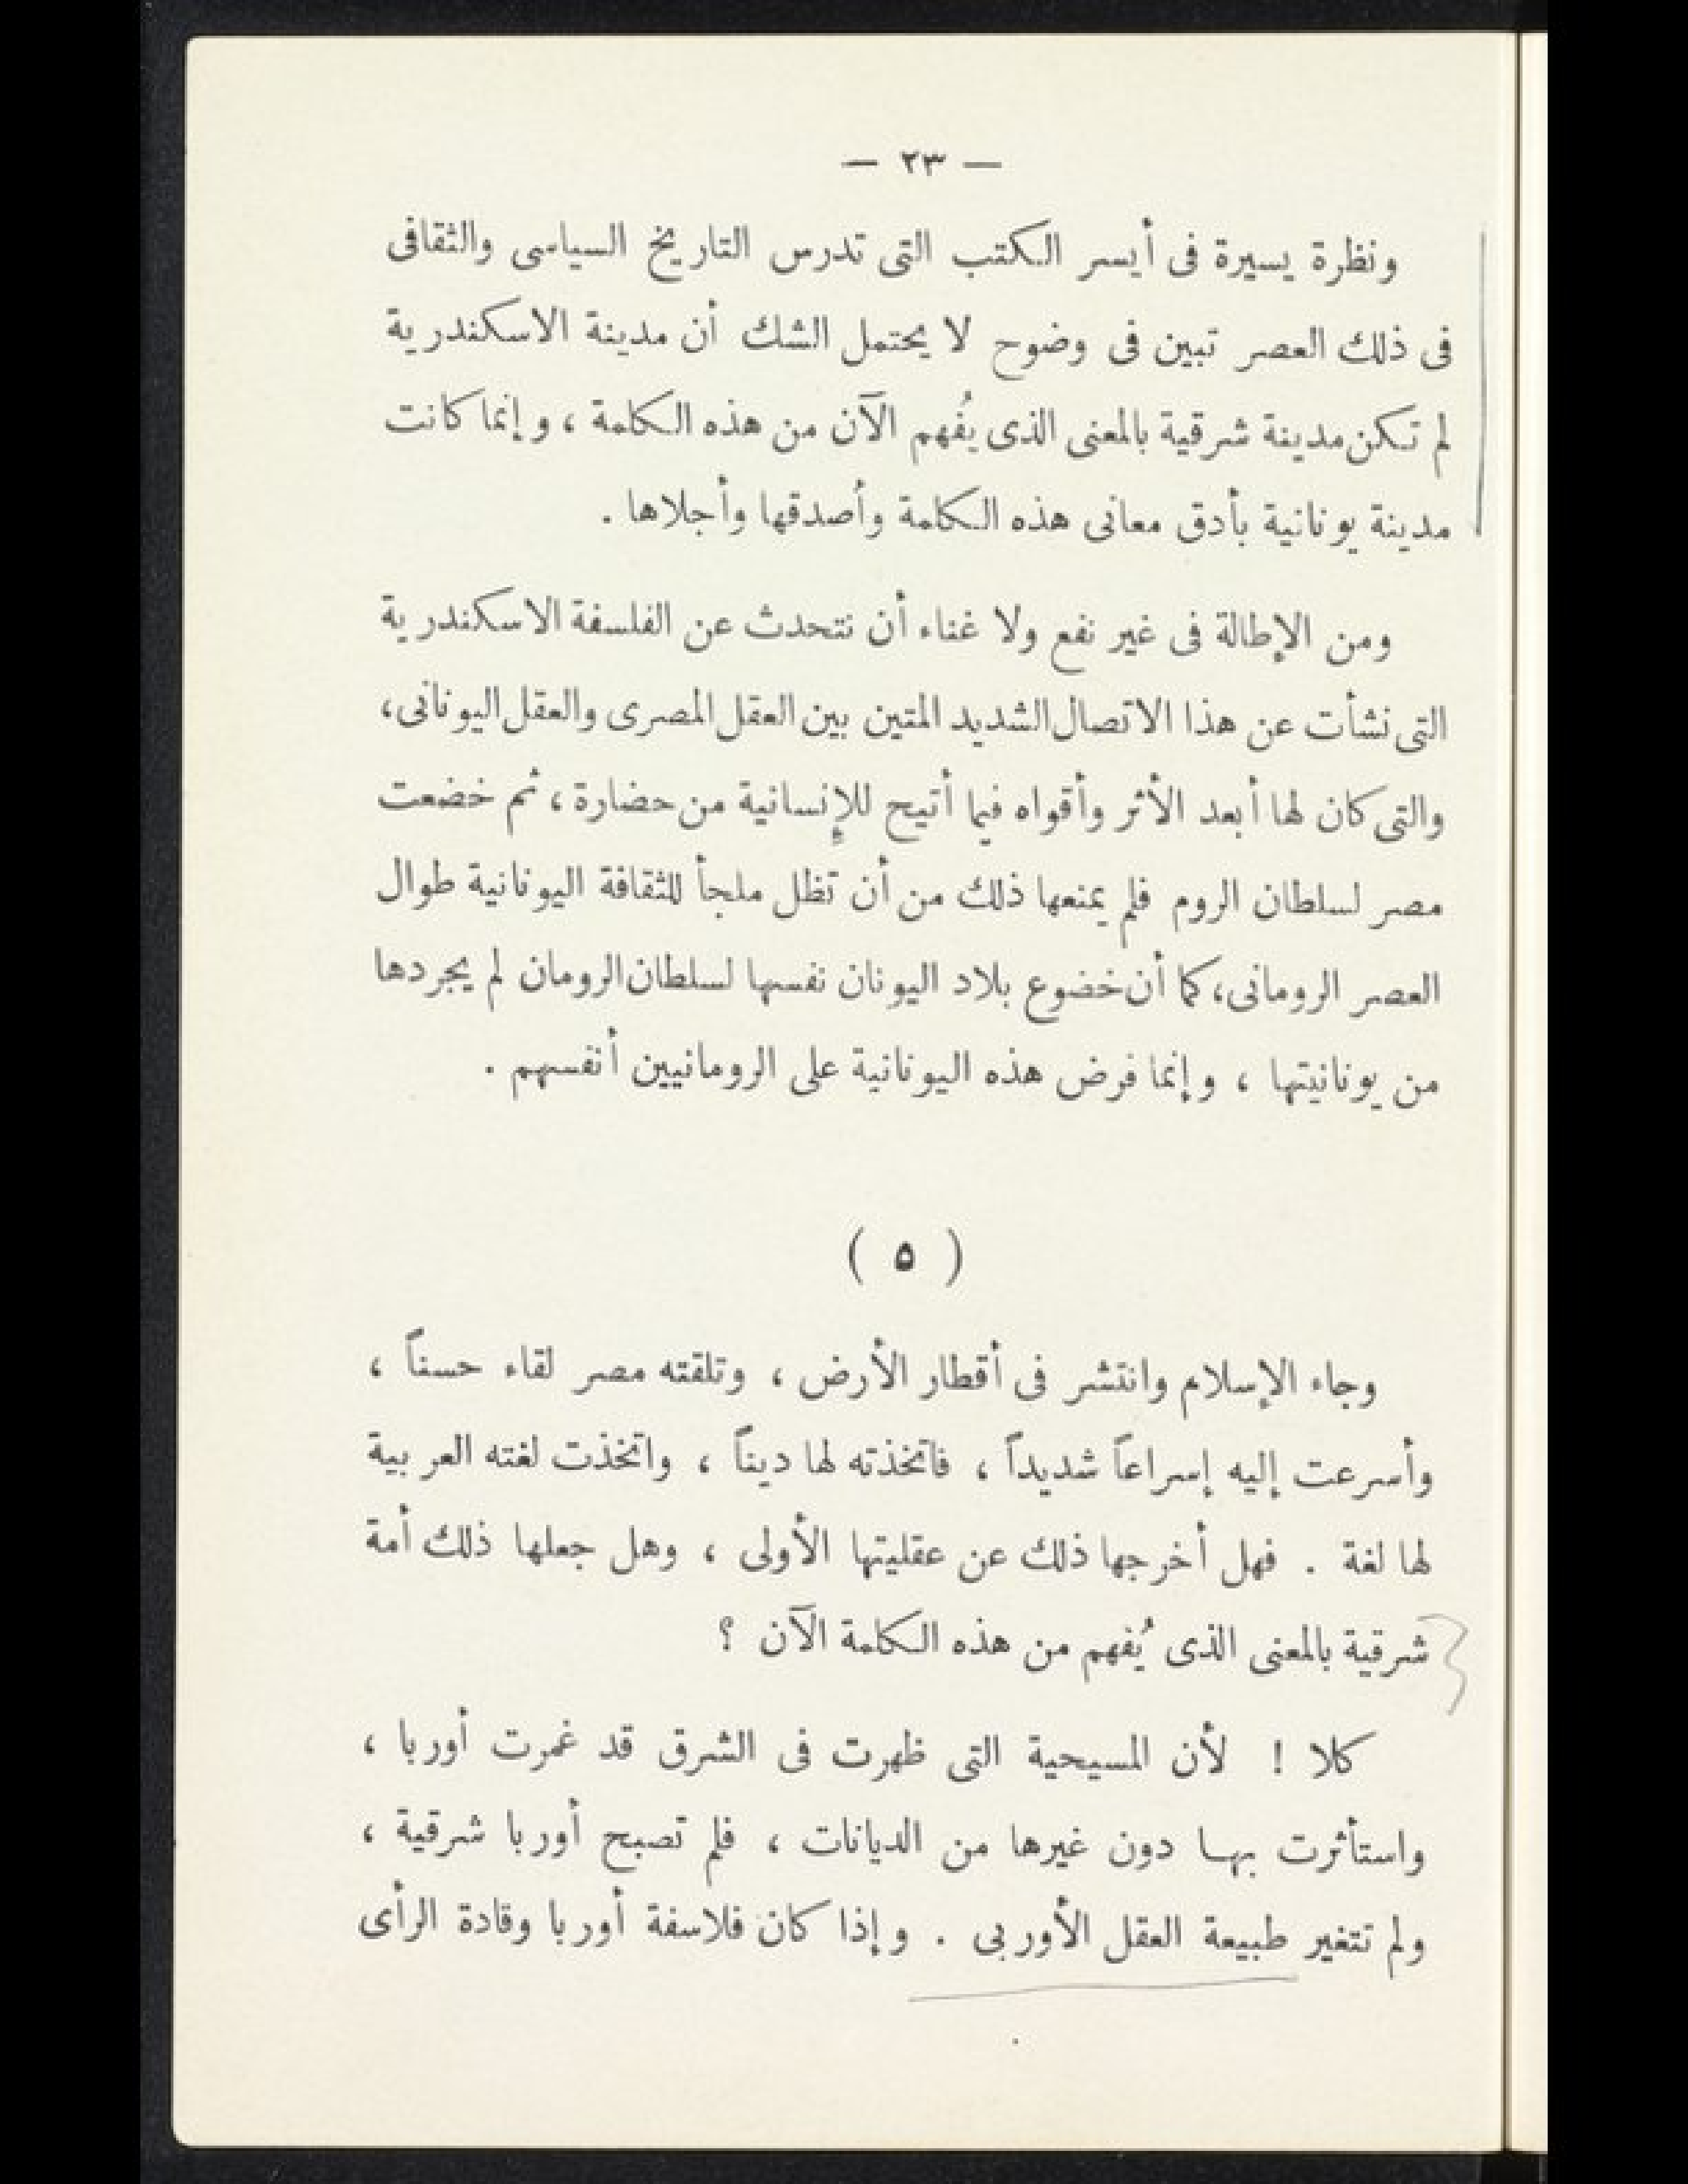 — ٢٣ —
ونظرة يسيرة فى أيسر الكتب التى تدرس التاريخ السياسى والثقافى
فى ذلك العصر تبين فى وضوح لا يحتمل الشك أن مدينة الاسكندرية
لم تكن مدينة شرقية بالمعنى الذى يُفهم الآن من هذه الكلمة ، وإنما كانت
مدينة يونانية بأدق معانى هذه الكلمة وأصدقها وأجلاها .
ومن الإطالة فى غير نفع ولا غناء أن نتحدث عن الفلسفة الاسكندرية
التى نشأت عن هذا الاتصال الشديد المتين بين العقل المصرى والعقل اليونانى،
والتى كان لها أبعد الأثر وأقواه فيما أتيح للإنسانية من حضارة ، ثم خضعت
مصر لسلطان الروم فلم يمنعها ذلك من أن تظل ملجأ للثقافة اليونانية طوال
العصر الرومانى، كما أن خضوع بلاد اليونان نفسها لسلطان الرومان لم يجردها
من يونانيتها ، وإنما فرض هذه اليونانية على الرومانيين أنفسهم .
( ٥ )
وجاء الإسلام وانتشر فى أقطار الأرض ، وتلقته مصر لقاء حسناً ،
وأسرعت إليه إسراعاً شديداً ، فاتخذته لها ديناً ، واتخذت لغته العربية
لها لغة . فهل أخرجها ذلك عن عقليتها الأولى ، وهل جعلها ذلك أمة
شرقية بالمعنى الذى يُفهم من هذه الكلمة الآن ؟
كلا ! لأن المسيحية التى ظهرت فى الشرق قد غمرت أوربا ،
واستأثرت بها دون غيرها من الديانات ، فلم تصبح أوربا شرقية ،
ولم تتغير طبيعة العقل الأوربى . وإذا كان فلاسفة أوربا وقادة الرأى